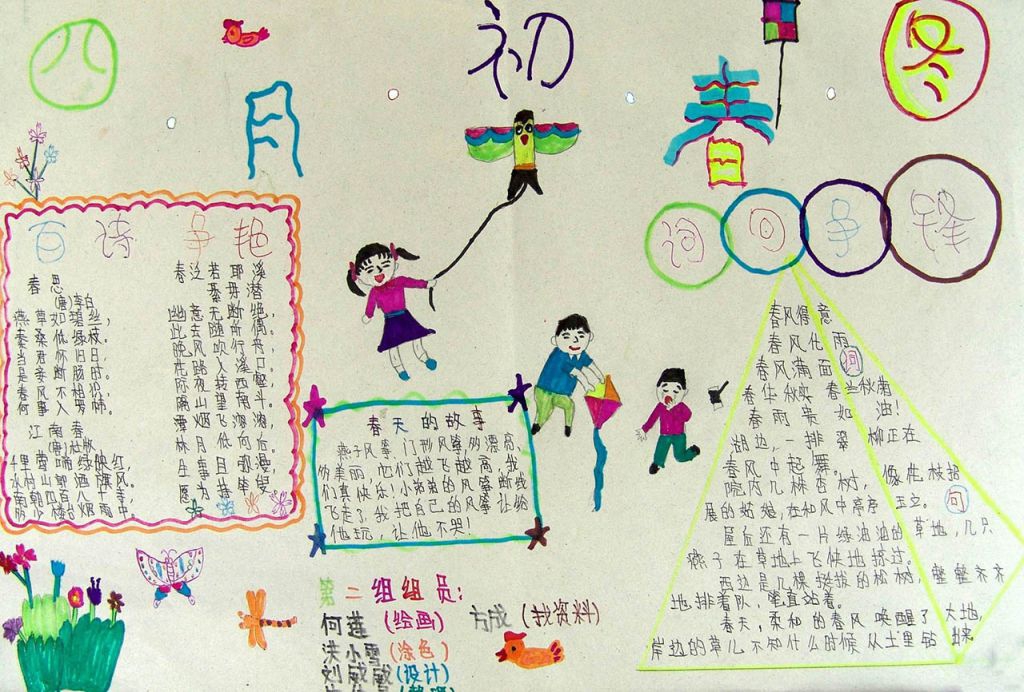 八
月
初
春
冬
百诗争艳
春思
(唐)李白
燕草如碧丝,
秦桑低绿枝。
当君怀旧日,
是妾断肠时。
春风不相识,
何事入罗帏。
江南春
(唐)杜牧
千里莺啼绿映红,
水村山郭酒旗风。
南朝四百八十寺,
多少楼台烟雨中。
春泛若耶溪
綦毋潜
幽意无断绝,
此去随所偶。
晚风吹行舟,
花路入溪口。
际夜转西壑,
隔山望南斗。
潭烟飞溶溶,
林月低向后。
生事且弥漫,
愿为持竿叟
春天的故事
燕子风筝,门形风筝多漂亮,
多美丽,它们越飞越高,我
们真快乐!小弟弟的风筝断线
飞走了,我把自己的风筝让给
他玩,让他不哭!
第二组组员:
何莲(绘画) 方成(找资料)
洪小雪(涂色)
刘敏敏(设计)
词回争锋
春风得意
春风化雨
春风满面 词
春华秋实 春兰秋菊
春雨贵如油!
湖边,一排翠柳正在
春风中起舞。
院内几株杏树,像花枝招
展的姑娘,在和风中亭亭玉立。 句
屋后还有一片绿油油的草地,几只
燕子在草地上飞快地掠过。
西边是几棵挺拔的松树,整整齐齐
地排着队,笔直站着。
春天,柔和的春风唤醒了大地,
岸边的草儿不知什么时候从土里钻出来